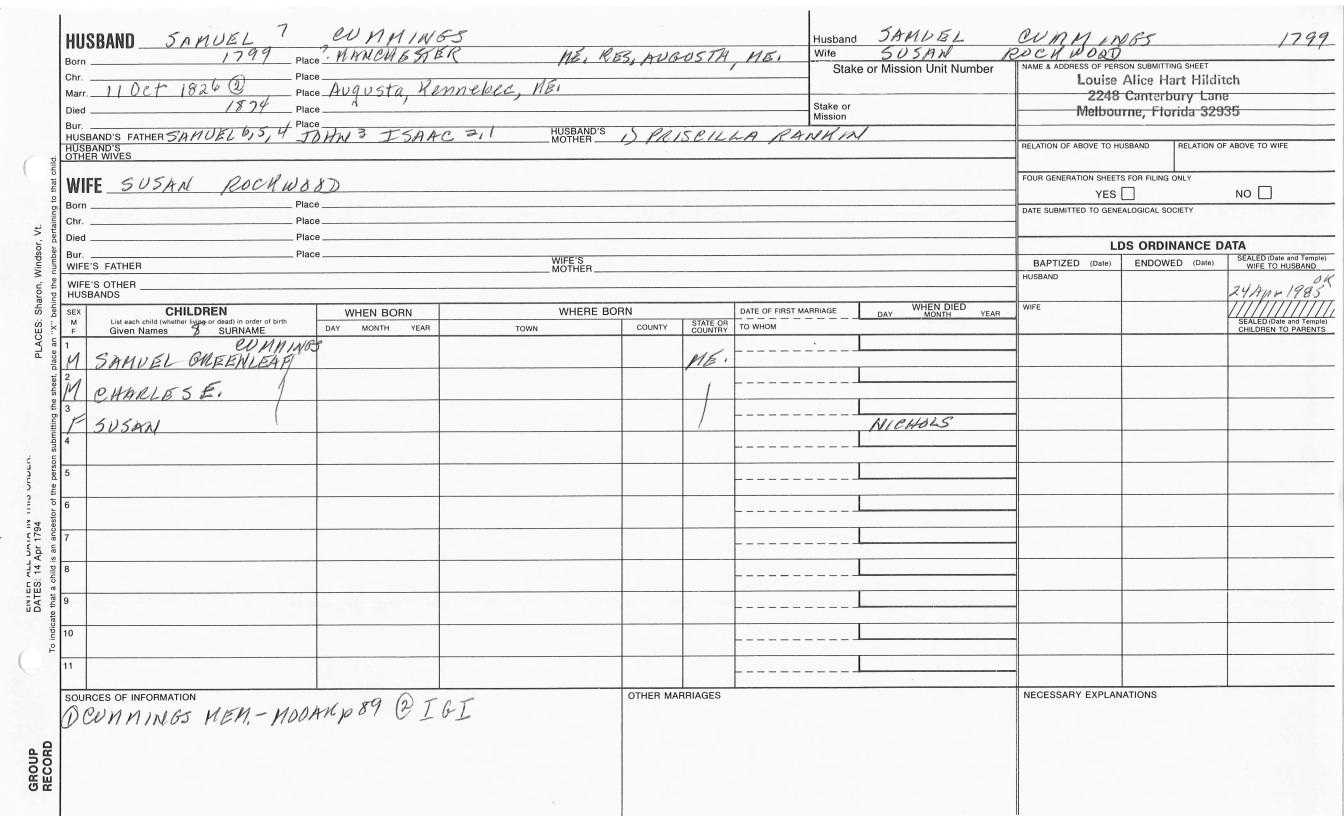 HUSBAND SAMUEL 7 CUMMINGS
Born 1799 Place ? MANCHESTER ME. RES, AUGUSTA, ME.
Chr. Place
Marr. 11 Oct 1826 ② Place Augusta, Kennebec, ME.
Died 1874 Place
Bur. Place
HUSBAND'S FATHER SAMUEL 6, 5, 4 JOHN 3 ISAAC 2, 1 HUSBAND'S MOTHER 1) PRISCILLA RANKIN
HUSBAND'S OTHER WIVES
Husband SAMUEL CUMMINGS 1799
Wife SUSAN ROCKWOOD
Stake or Mission Unit Number
Stake or Mission
NAME & ADDRESS OF PERSON SUBMITTING SHEET
Louise Alice Hart Hilditch
2248 Canterbury Lane
Melbourne, Florida 32935
RELATION OF ABOVE TO HUSBAND RELATION OF ABOVE TO WIFE
FOUR GENERATION SHEETS FOR FILING ONLY
YES NO
DATE SUBMITTED TO GENEALOGICAL SOCIETY
WIFE SUSAN ROCKWOOD
Born Place
Chr. Place
Died Place
Bur. Place
WIFE'S FATHER WIFE'S MOTHER
WIFE'S OTHER HUSBANDS
LDS ORDINANCE DATA
BAPTIZED (Date) ENDOWED (Date) SEALED (Date and Temple) WIFE TO HUSBAND
HUSBAND OK
24 Apr 1985
WIFE
SEALED (Date and Temple) CHILDREN TO PARENTS
SEX M F
CHILDREN
List each child (whether living or dead) in order of birth
Given Names 8 SURNAME
WHEN BORN
DAY MONTH YEAR
WHERE BORN
TOWN COUNTY STATE OR COUNTRY
DATE OF FIRST MARRIAGE
TO WHOM
WHEN DIED
DAY MONTH YEAR
1 CUMMINGS
M SAMUEL GREENLEAF ME.
2
M CHARLES E.
3
F SUSAN NICHOLS
4
5
6
7
8
9
10
11
SOURCES OF INFORMATION
① CUMMINGS MEM.-MOOAR p 89 ② IGI
OTHER MARRIAGES
NECESSARY EXPLANATIONS
PLACES: Sharon, Windsor, Vt.
DATES: 14 Apr 1794
To indicate that a child is an ancestor of the person submitting the sheet, place an "X" behind the number pertaining to that child.
GROUP
RECORD